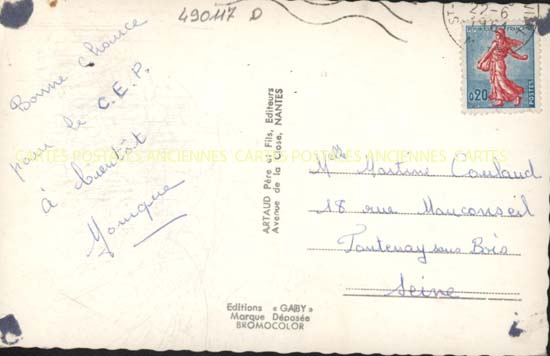 490117 D
Bonne chance
pour le C.E.P.
à bientôt
Monique
ARTAUD Père et Fils, Editeurs
Avenue de la Close, NANTES
22-6
1961
0,20
POSTES
Melle Martine Coulaud
18 rue Mauconseil
Fontenay sous Bois
Seine
Editions « GABY »
Marque Déposée
BROMOCOLOR
CARTES POSTALES ANCIENNES CARTES POSTALES ANCIENNES CARTES